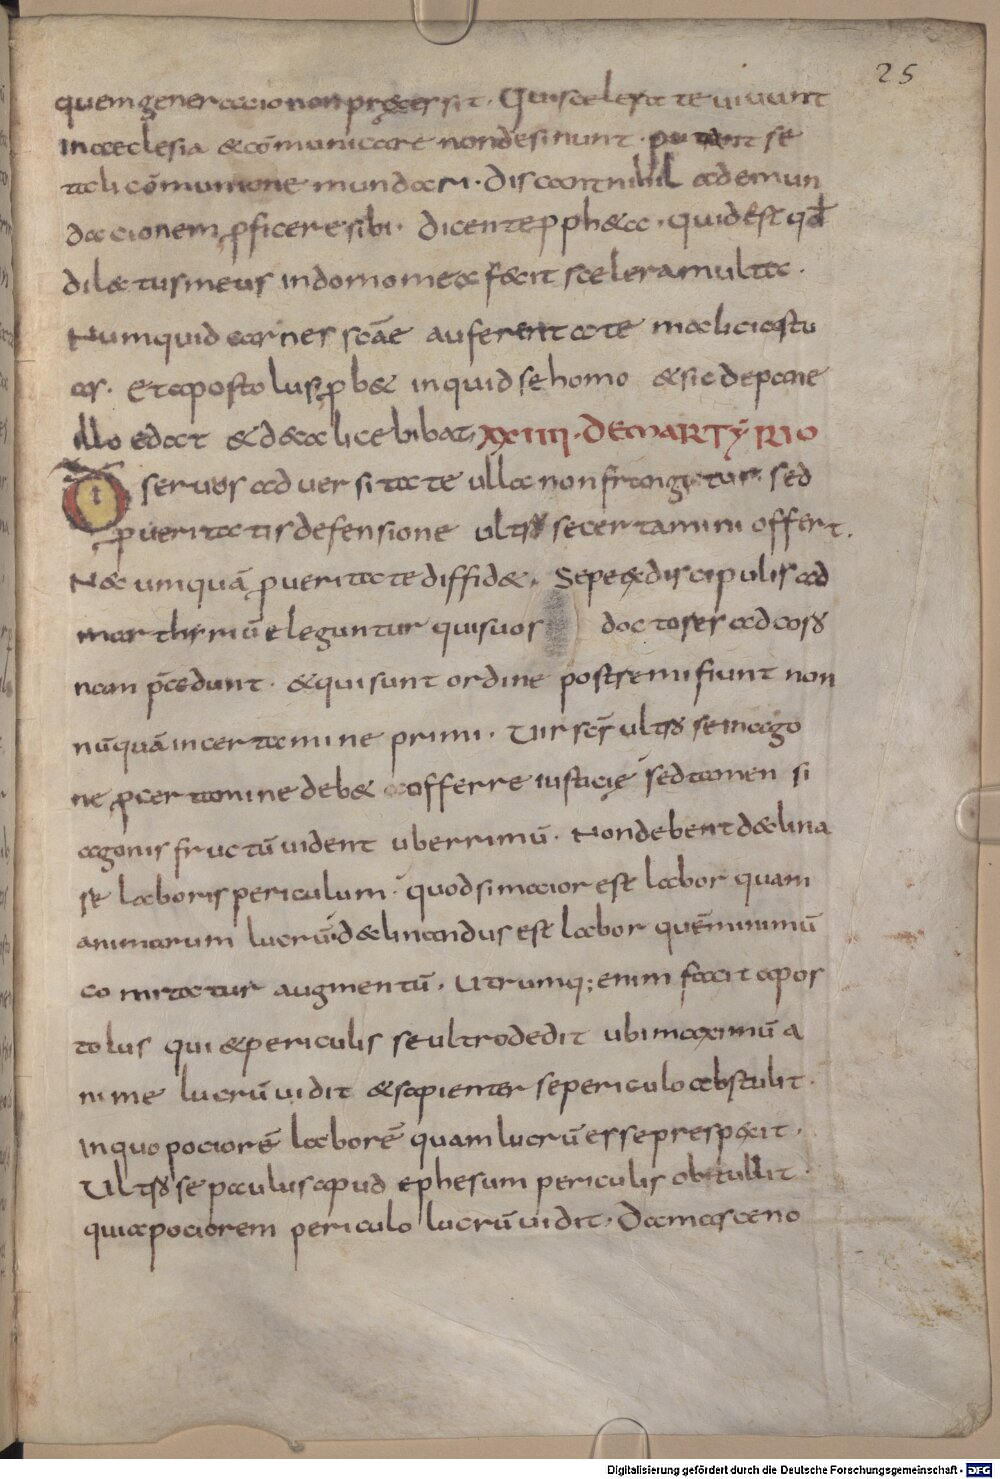 25
quem generatio non precessit. Qui scelerate uiuunt
in ecclesia & cōmunicare non desinunt. putant se
tali cōmunione mundari. discant nihil ad emun
dacionem ꝓficere sibi. dicente ꝓph&a. quid est qđ
dil&tus meus in domo mea fecit scelera multa.
Numquid carnes scāe auferent a te malicias tu
as. Et apostolus ꝓb& inquid se homo & sic de pane
illo edat & de calice bibat. XXIIII. DE MARTYRIO
Dī seruos aduersitate ulla non frangetur. sed
ꝓ ueritatis defensione ultro se certamini offert.
Nec umquā ꝓ ueritate diffid&. Sepe & discipulis ad
marthyriū eleguntur qui suos doctores ad coro
nam p̄cedunt. & qui sunt ordine postremi fiunt non
nūquā in certamine primi. Uir scs̄ ultro se in ago
ne ꝓ certamine deb& offerre iusticię sed tamen si
agonis fructū uident uberrimū. Non debent declina
se laboris periculum. quod si maior est labor quam
animarum lucrū declinandus est labor quē minimū
comitatur augmentū. Utrumq; enim facit apos
tolus qui & periculis se ultro dedit ubi maximū a
nime lucrū uidit & sapienter se periculo abstulit.
in quo pociorē laborē quam lucrū esse prespexit.
Ultro se paulus apud ephesum periculis obtullit.
quia pociorem periculo lucrū uidit. Damasceno
Digitalisierung gefördert durch die Deutsche Forschungsgemeinschaft - DFG